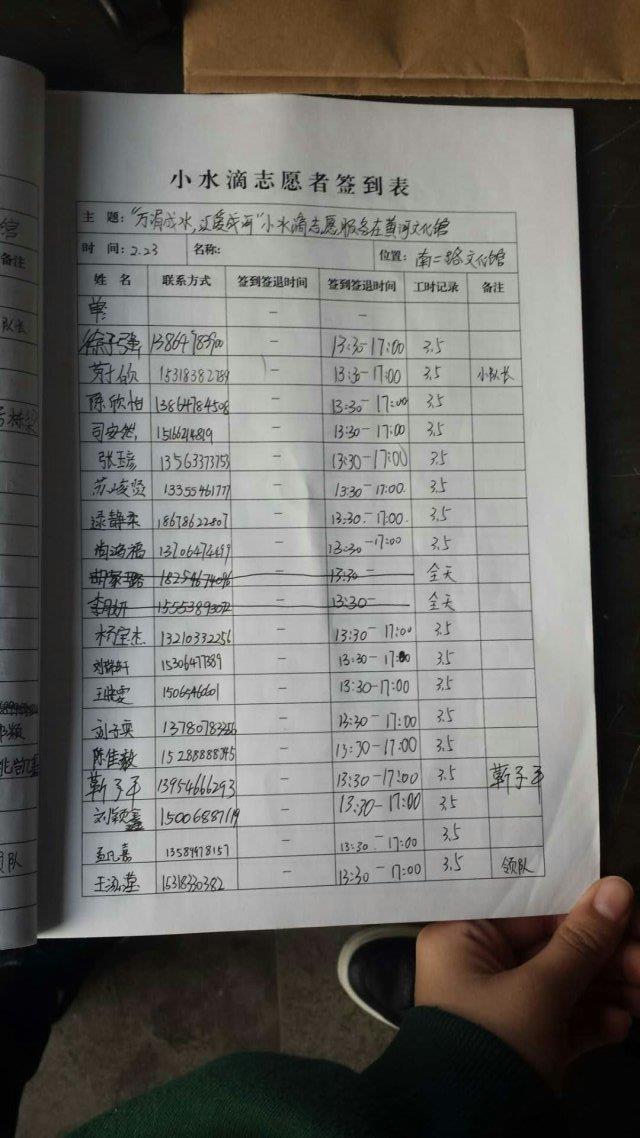 小水滴志愿者签到表
主 题: "万涓成水,汇聚成河"小水滴志愿服务在黄河文化馆
时 间: 2.23 名称: 位置: 南二路文化馆
姓 名 联系方式 签到签退时间 签到签退时间 工时记录 备注
单 - -
徐子强 13864783900 - 13:30-17:00 3.5
15318382789 - 13:30-17:00 3.5 小队长
陈欣怡 13864784508 - 13:30-17:00 3.5
司安然 15166214819 - 13:30-17:00 3.5
张玉彦 13563373753 - 13:30-17:00 3.5
苏峻贤 13355461777 - 13:30-17:00 3.5
逯静柔 18678622807 - 13:30-17:00 3.5
尚鸿福 13706474459 - 13:30-17:00 3.5
18254674096 - 13:30- 全天
15553893072 - 13:30- 全天
杨宝杰 13210332256 - 13:30-17:00 3.5
15306477389 - 13:30-17:00 3.5
王晓雯 1506546601 - 13:30-17:00 3.5
刘子奕 - 13:30-17:00 3.5
陈佳毅 15288888745 - 13:30-17:00 3.5
靳子平 13954666293 - 13:30-17:00 3.5 靳子平
刘颖鑫 15006887119 - 13:30-17:00 3.5
孟凡嘉 13589478157 - 13:30-17:00 3.5
王泓莹 - 13:30-17:00 3.5 领队
备注
队长
领队